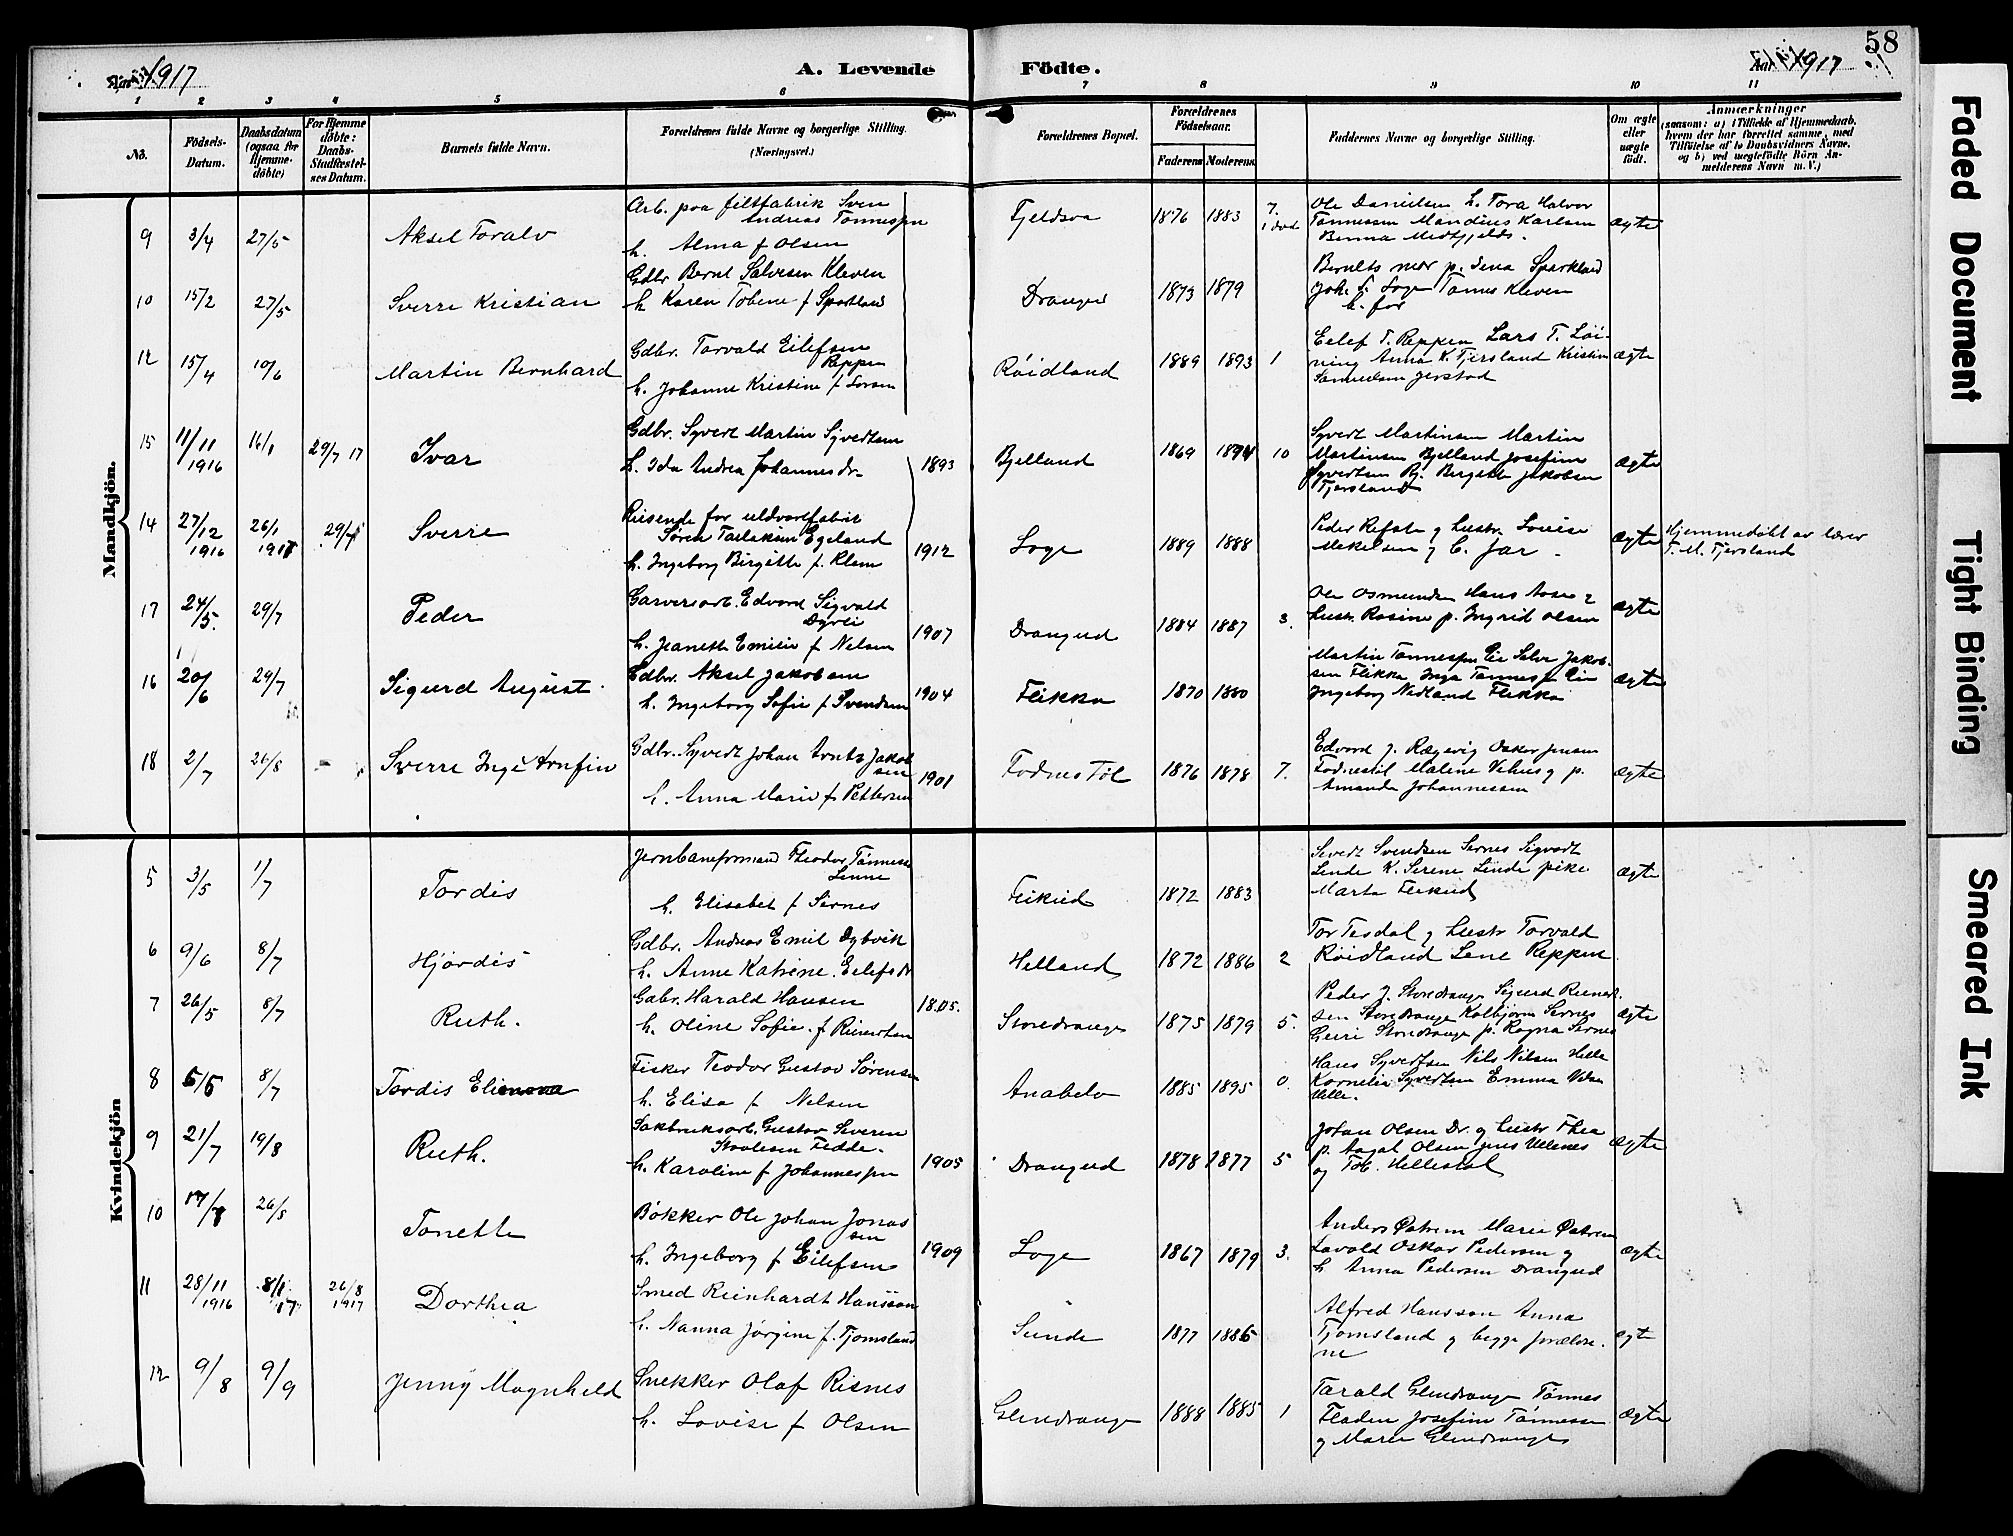 58
Aar 1917
A. Levende Födte.
Aar 1917
1 2 3 4 5 6 7 8 9 10 11
No.
Födsels-
Datum.
Daabsdatum
(ogsaa for
Hjemme-
döbte)
For Hjemme
döbte:
Daabs-
Stadfæstel-
ses Datum.
Barnets fulde Navn.
Forældrenes fulde Navne og borgerlige Stilling.
(Næringsvei.)
Forældrenes Bopæl.
Forældrenes
Födselsaar.
Faderens Moderens
Faddernes Navne og borgerlige Stilling.
Om ægte
eller
uægte
födt.
Anmærkninger
(saasom: a) i Tilfælde af Hjemmedaab,
hvem der har forrettet samme, med
Tilföielse af to Daabsvidners Navne,
og b) ved uægtefödte Börn An-
melderens Navn m. V.)
Mandkjön.
9 3/4 27/5 Aksel Toralv
Arb. paa filtfabrik Sven
Andreas Tønnessen
h. Alma f Olsen
Fjeldsaa 1876 1883 7. 1 død
Ole Danielsen h. Tora Halvor
Tønnessen Mandius Karlsen
Benna Midtfjelds.
ægte
10 15/2 27/5 Sverre Kristian
Gdbr Bernt Salvesen Kleven
h Karen Tobine f Sparkland
Dranged 1873 1879
Bernets mor p. Sena Sparkland
Joh. L. Loge Tønnes Kleven
h. far
12 15/4 10/6 Martin Bernhard
Gdbr. Torvald Eilefsen
Reppen
h. Johanne Kristine f
Røidland 1889 1893 1
Eelef T. Reppen Lars T. Løi-
ning Anna K. Tjersland Kristin
Samuelsen Jerstad
ægte
15 11/11 1916 16/1 29/7 17 Ivar
Gdbr. Syvert Martin Syvertsen
h. Ida Andrea Johannesdr 1893
Bjelland 1869 1874 10
Syvert Martinsen Martin
Martinsen Bjelland Josefine
Syvertsen Bj. Birgitte Jakobsen
Tjersland
ægte
14 27/12 1916 26/1 1917 29/7 Sverre
Reisende for uldvarefabrik
Søren Tarlaksen Egeland
h. Ingeborg Birgitte f. Klem 1912
Loge 1889 1888
Peder Refste g hustr. Lovise
Mekelsen g B. far
ægte Hjemmedøbt av lærer
T. M. Tjersland
17 24/5. 29/7 Peder
Garveriarb. Edvard Sigvald
Dyrli
h. Jeanette Emilie f Nelsen 1907
Drangeid 1884 1887 3.
Ole Osmundsen Hans Aase g
hustr. Rosine p. Ingrid Olsen
ægte
16 20/6 29/7 Sigurd August
Gdbr. Aksel Jakobsen
h. Ingeborg Sofie f Svendsen 1904
Flikka 1870 1880
Martin Tønnessen Eie Salve Jakob-
sen Flikka Inga Tønnessen Eie
Ingeborg Nedland Flikka
ægte
18 2/7 26/8 - Sverre Inge Arnfin
Gdbr. Syvert Johan Arnt Jakob
sen
h. Anna Marie f Pettersen 1901
Fodnestøl 1876 1878 7.
Edvard J. Rægevig Oskar Jensen
Fodnestøl Maline Vehus g p.
Amanda Johannessen
ægte
Kvindekjön
5 3/5 1/7 Tordis
Jernbaneformand Theodor Tønnesse
Linne
h. Elisabet f Sirnes
Feikeid 1872 1883
Severt Svendsen Sernes Sigvart
Linde K. Serene Linde pike
Marta Feikeid
ægte
6 9/6 8/7 Hjørdis
Gdbr. Andreas Emil Dybvik
h. Anne Katrine Eilefsdr
Helland 1872 1886 2
Tor Tesdal g hustr Torvald
Røidland Lene Reppen
7 26/5 8/7 Ruth.
Gabr. Harald Hansen
h. Oline Sofie f Reinertsen 1805.
Storedrange 1875 1879 5.
Peder J. Storedrange Sigurd Reinert-
sen Storedrange Kolbjørn Sirnes
Geiri Storedrange p. Ragna Sernes
ægte
8 5/5 8/7 Tordis Elienora
Fisker Teodor Gustav Sørensen
h. Elisa f Nelsen
Anabelø 1885 1895 0.
Hans Syvertsen Nils Nilsen Helle
Kornelia Syvertsen Emma
Helle.
9 21/7 19/8 Ruth.
Sakbruksarb. Gustav Severin
Staalesen Fedde.
h. Karoline f Johannessen 1905
Drangeid 1878 1877 5
Johan Olsen Dr. g hustr Thea
p. Aagot Olsen Jens Ullenes
og Tob. Hellestøl
ægte
10 17/7 26/8 Tonette
Bøkker Ole Johan Jonas
sen
h. Ingeborg f Eilefsen 1909
Loge 1867 1879 3.
Anders Østrem Marie Østrem
Lavold Oskar Pedersen g
h Anna Pedersen Drangeid
ægte
11 28/11 1916 8/1 17 26/8 1917 Dorthea
Smed Reinhardt Hansson
h. Nanna Jørgine f. Tjomsland
Sunde 1877 1886
Alfred Hansson Anna
Tjomsland g begge forældre.
ne
ægte
12 9/8 9/9 Jenny Magnhild
Snekker Olaf Risnes
h. Lovise f Olsen
Glendrange 1888 1885 1
Tarald Glendrange Tønnes
Fladen Josefine Tønnessen
g Marie Glendrange
ægte
Faded Document
Tight Binding
Smeared Ink